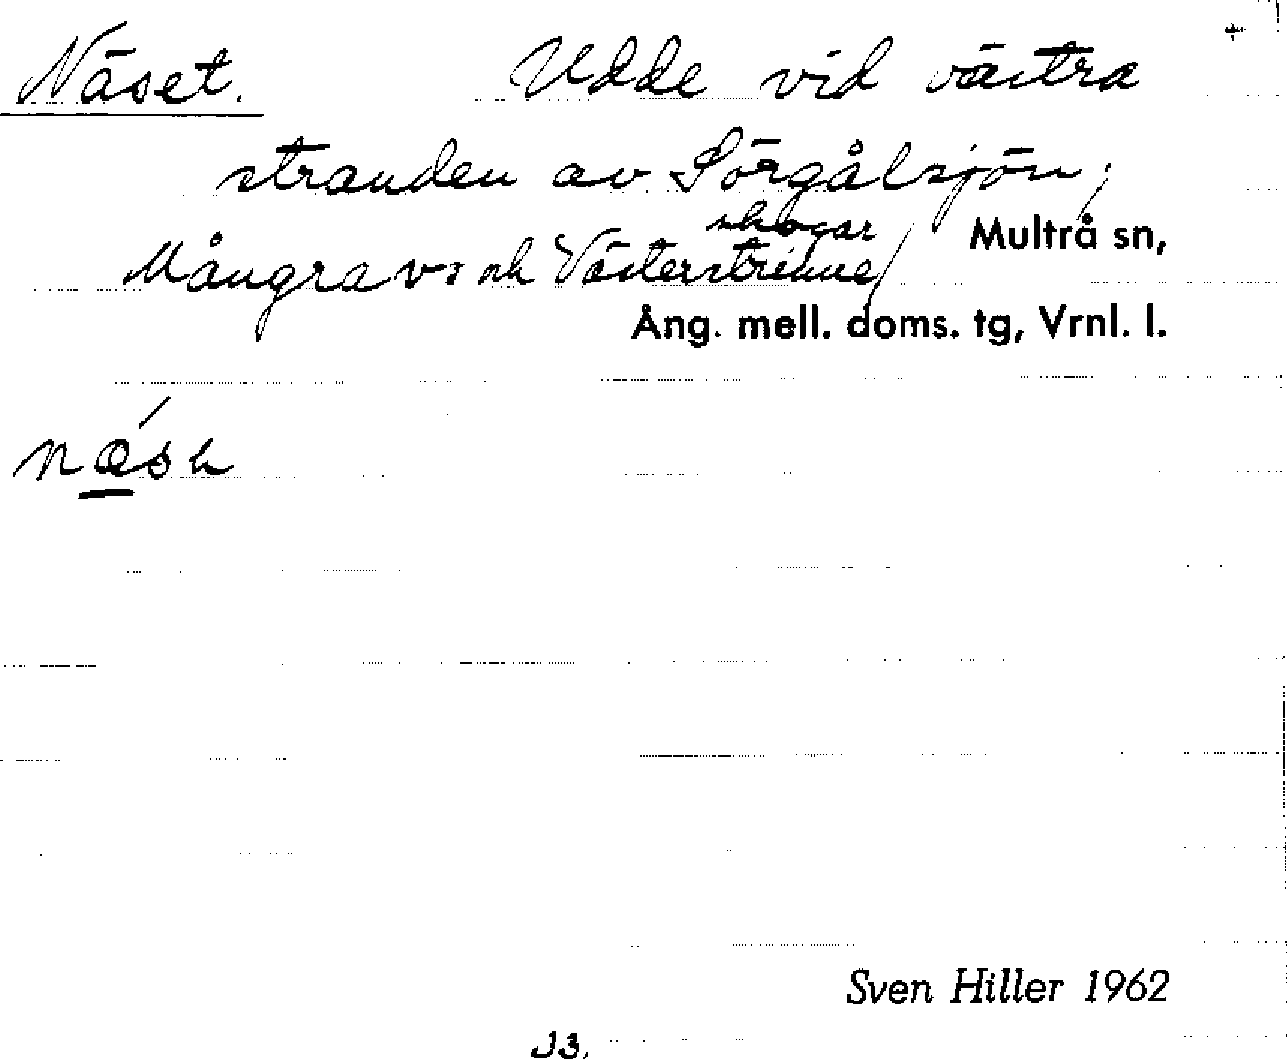 Näset. Udde vid västra
stranden av Sörgålsjön,
Mångravs och Västerstrinne skogar, Multrå sn,
Ång. mell. doms. tg, Vrnl. l.
Sven Hiller 1962
J3.